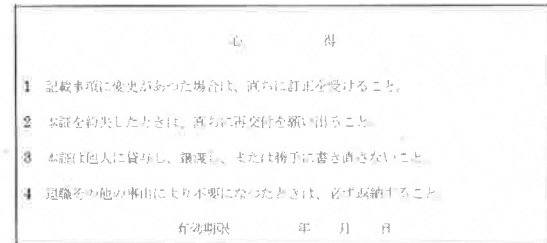 心得
1 記載事項に変更があつた場合は、直ちに訂正を受けること。
2 本証を紛失したときは、直ちに再交付を願い出ること。
3 本証は他人に貸与し、譲渡し、または勝手に書き直さないこと。
4 退職その他の事由により不要になつたときは、必ず返納すること。
有効期限 年 月 日